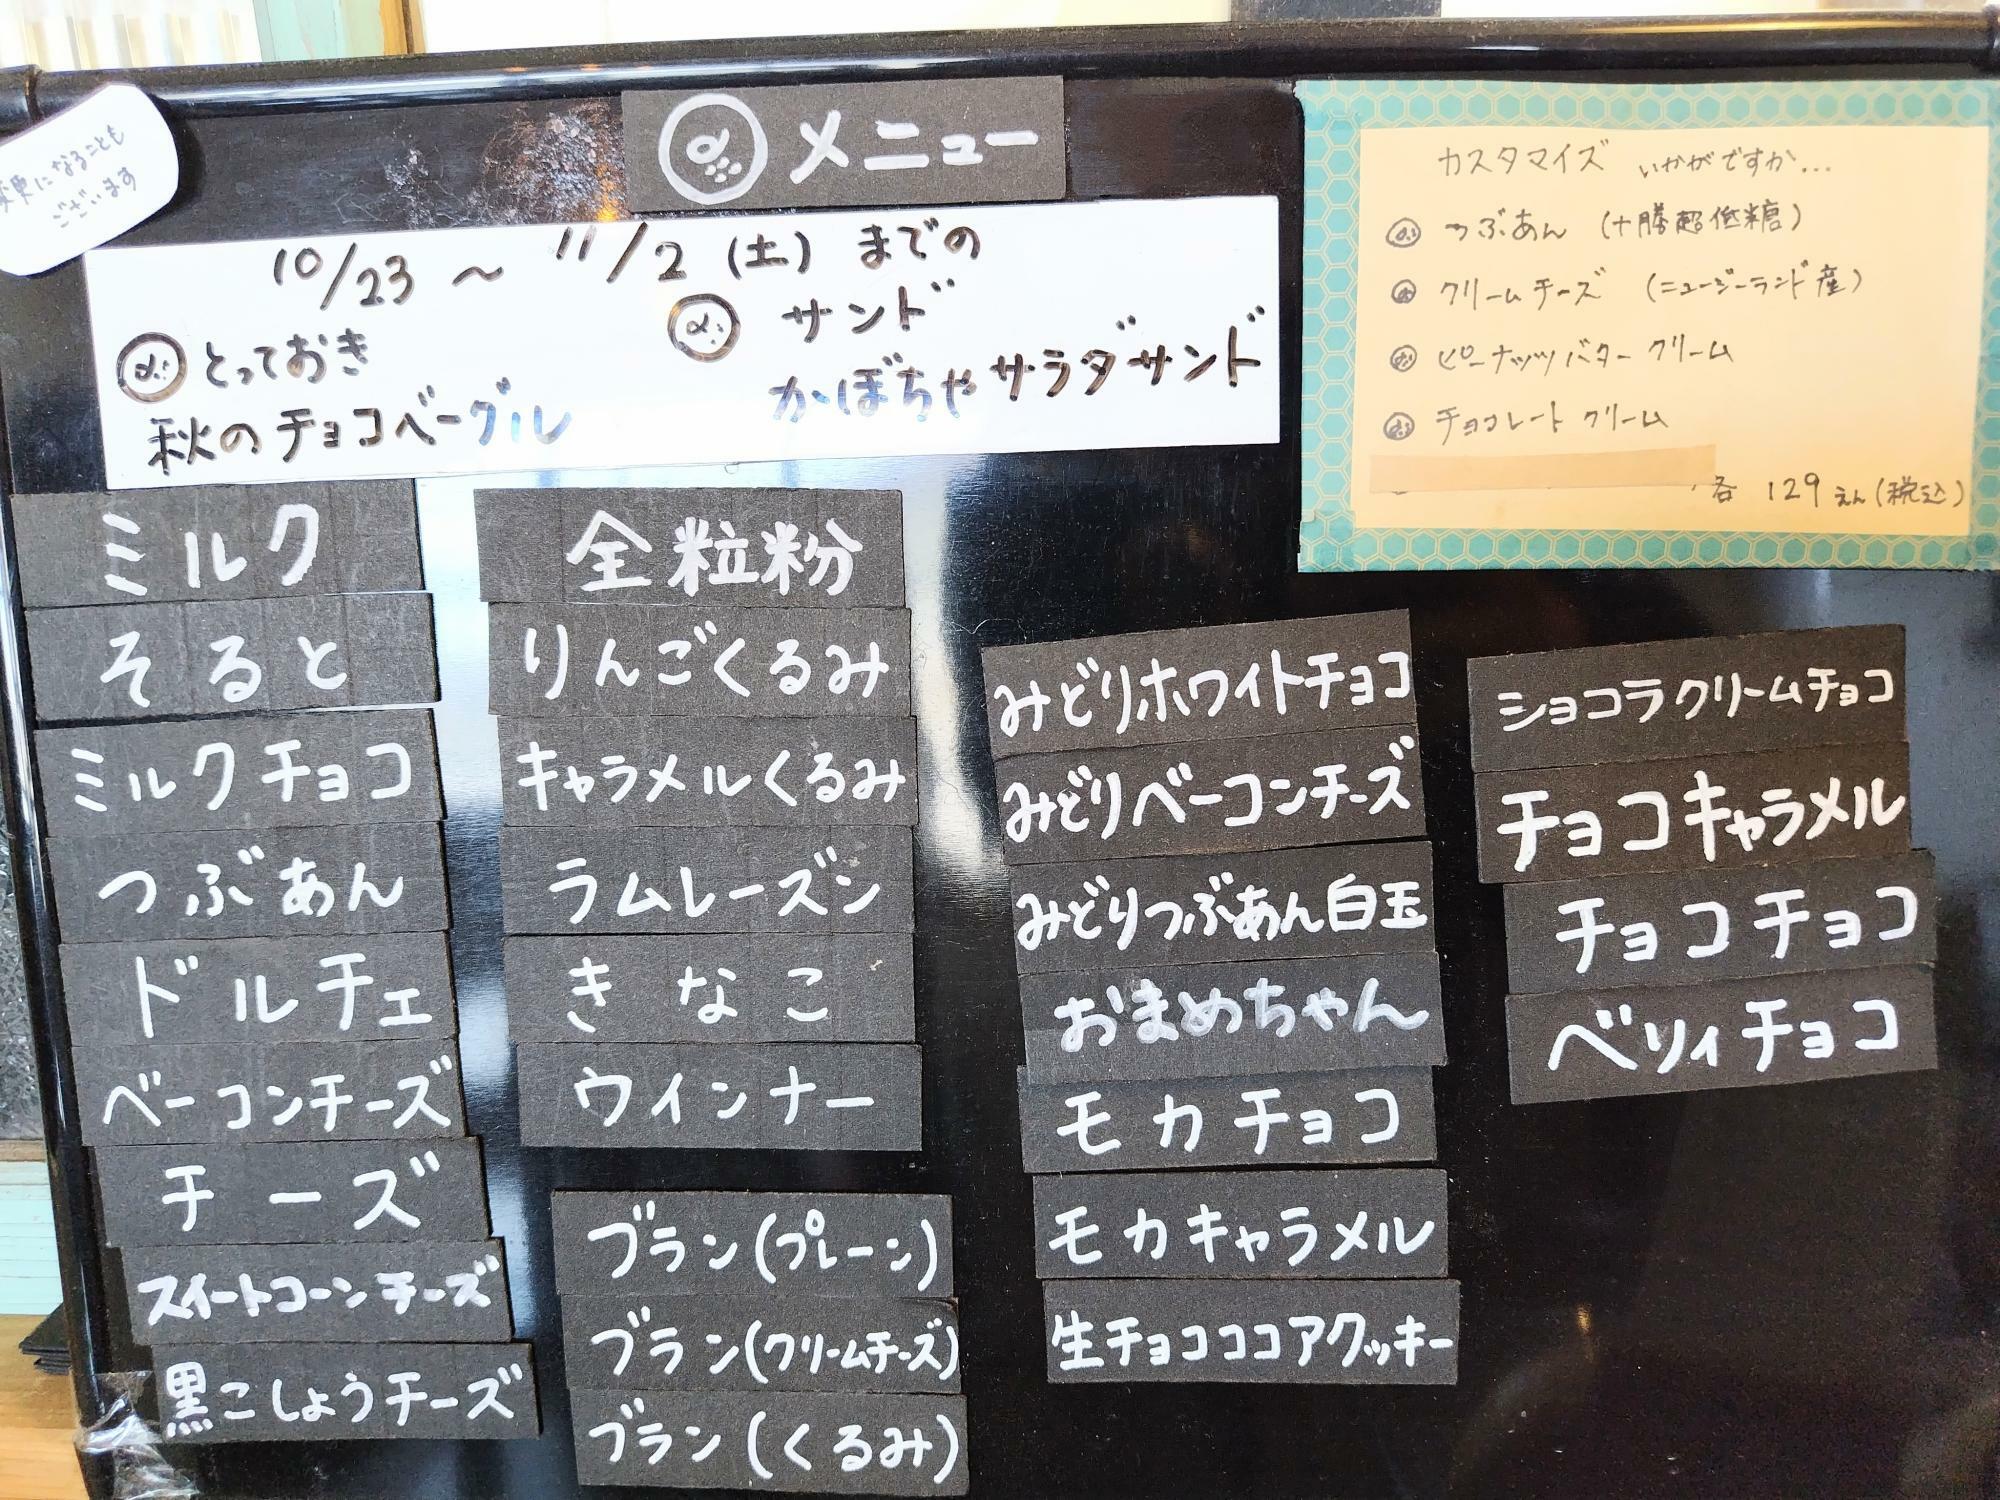 変更になることも
ございます
メニュー
10/23 ～ 11/2 (土) までの
とっておき
秋のチョコベーグル
サンド
かぼちゃサラダサンド
カスタマイズ いかがですか...
つぶあん (十勝超低糖)
クリームチーズ (ニュージーランド産)
ピーナッツバタークリーム
チョコレートクリーム
各 129えん(税込)
ミルク
そると
ミルクチョコ
つぶあん
ドルチェ
ベーコンチーズ
チーズ
スイートコーンチーズ
黒こしょうチーズ
全粒粉
りんごくるみ
キャラメルくるみ
ラムレーズン
きなこ
ウインナー
ブラン(プレーン)
ブラン(クリームチーズ)
ブラン(くるみ)
みどりホワイトチョコ
みどりベーコンチーズ
みどりつぶあん白玉
おまめちゃん
モカチョコ
モカキャラメル
生チョコココアクッキー
ショコラクリームチョコ
チョコキャラメル
チョコチョコ
ベリィチョコ